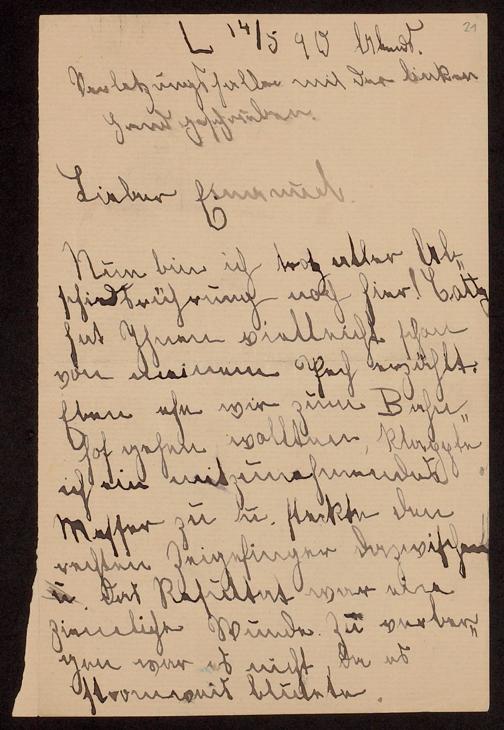 21
L 14/5 90 Abends.
Verletzungshalber mit der linken
Hand geschrieben.
Lieber Freund.
Nun bin ich trotz aller Ab-
schiedsrührung noch hier!
hat Ihnen vielleicht schon
von meinem Pech erzählt.
Eben ehe wir zum Bahn-
hof gehen wollten, klappte
ich ein mitzunehmendes
Messer zu u. steckte den
rechten Zeigefinger dazwischen
u. das Resultat war eine
ziemliche Wunde. Zu verber-
gen war es nicht, da es
stromweis blutete.